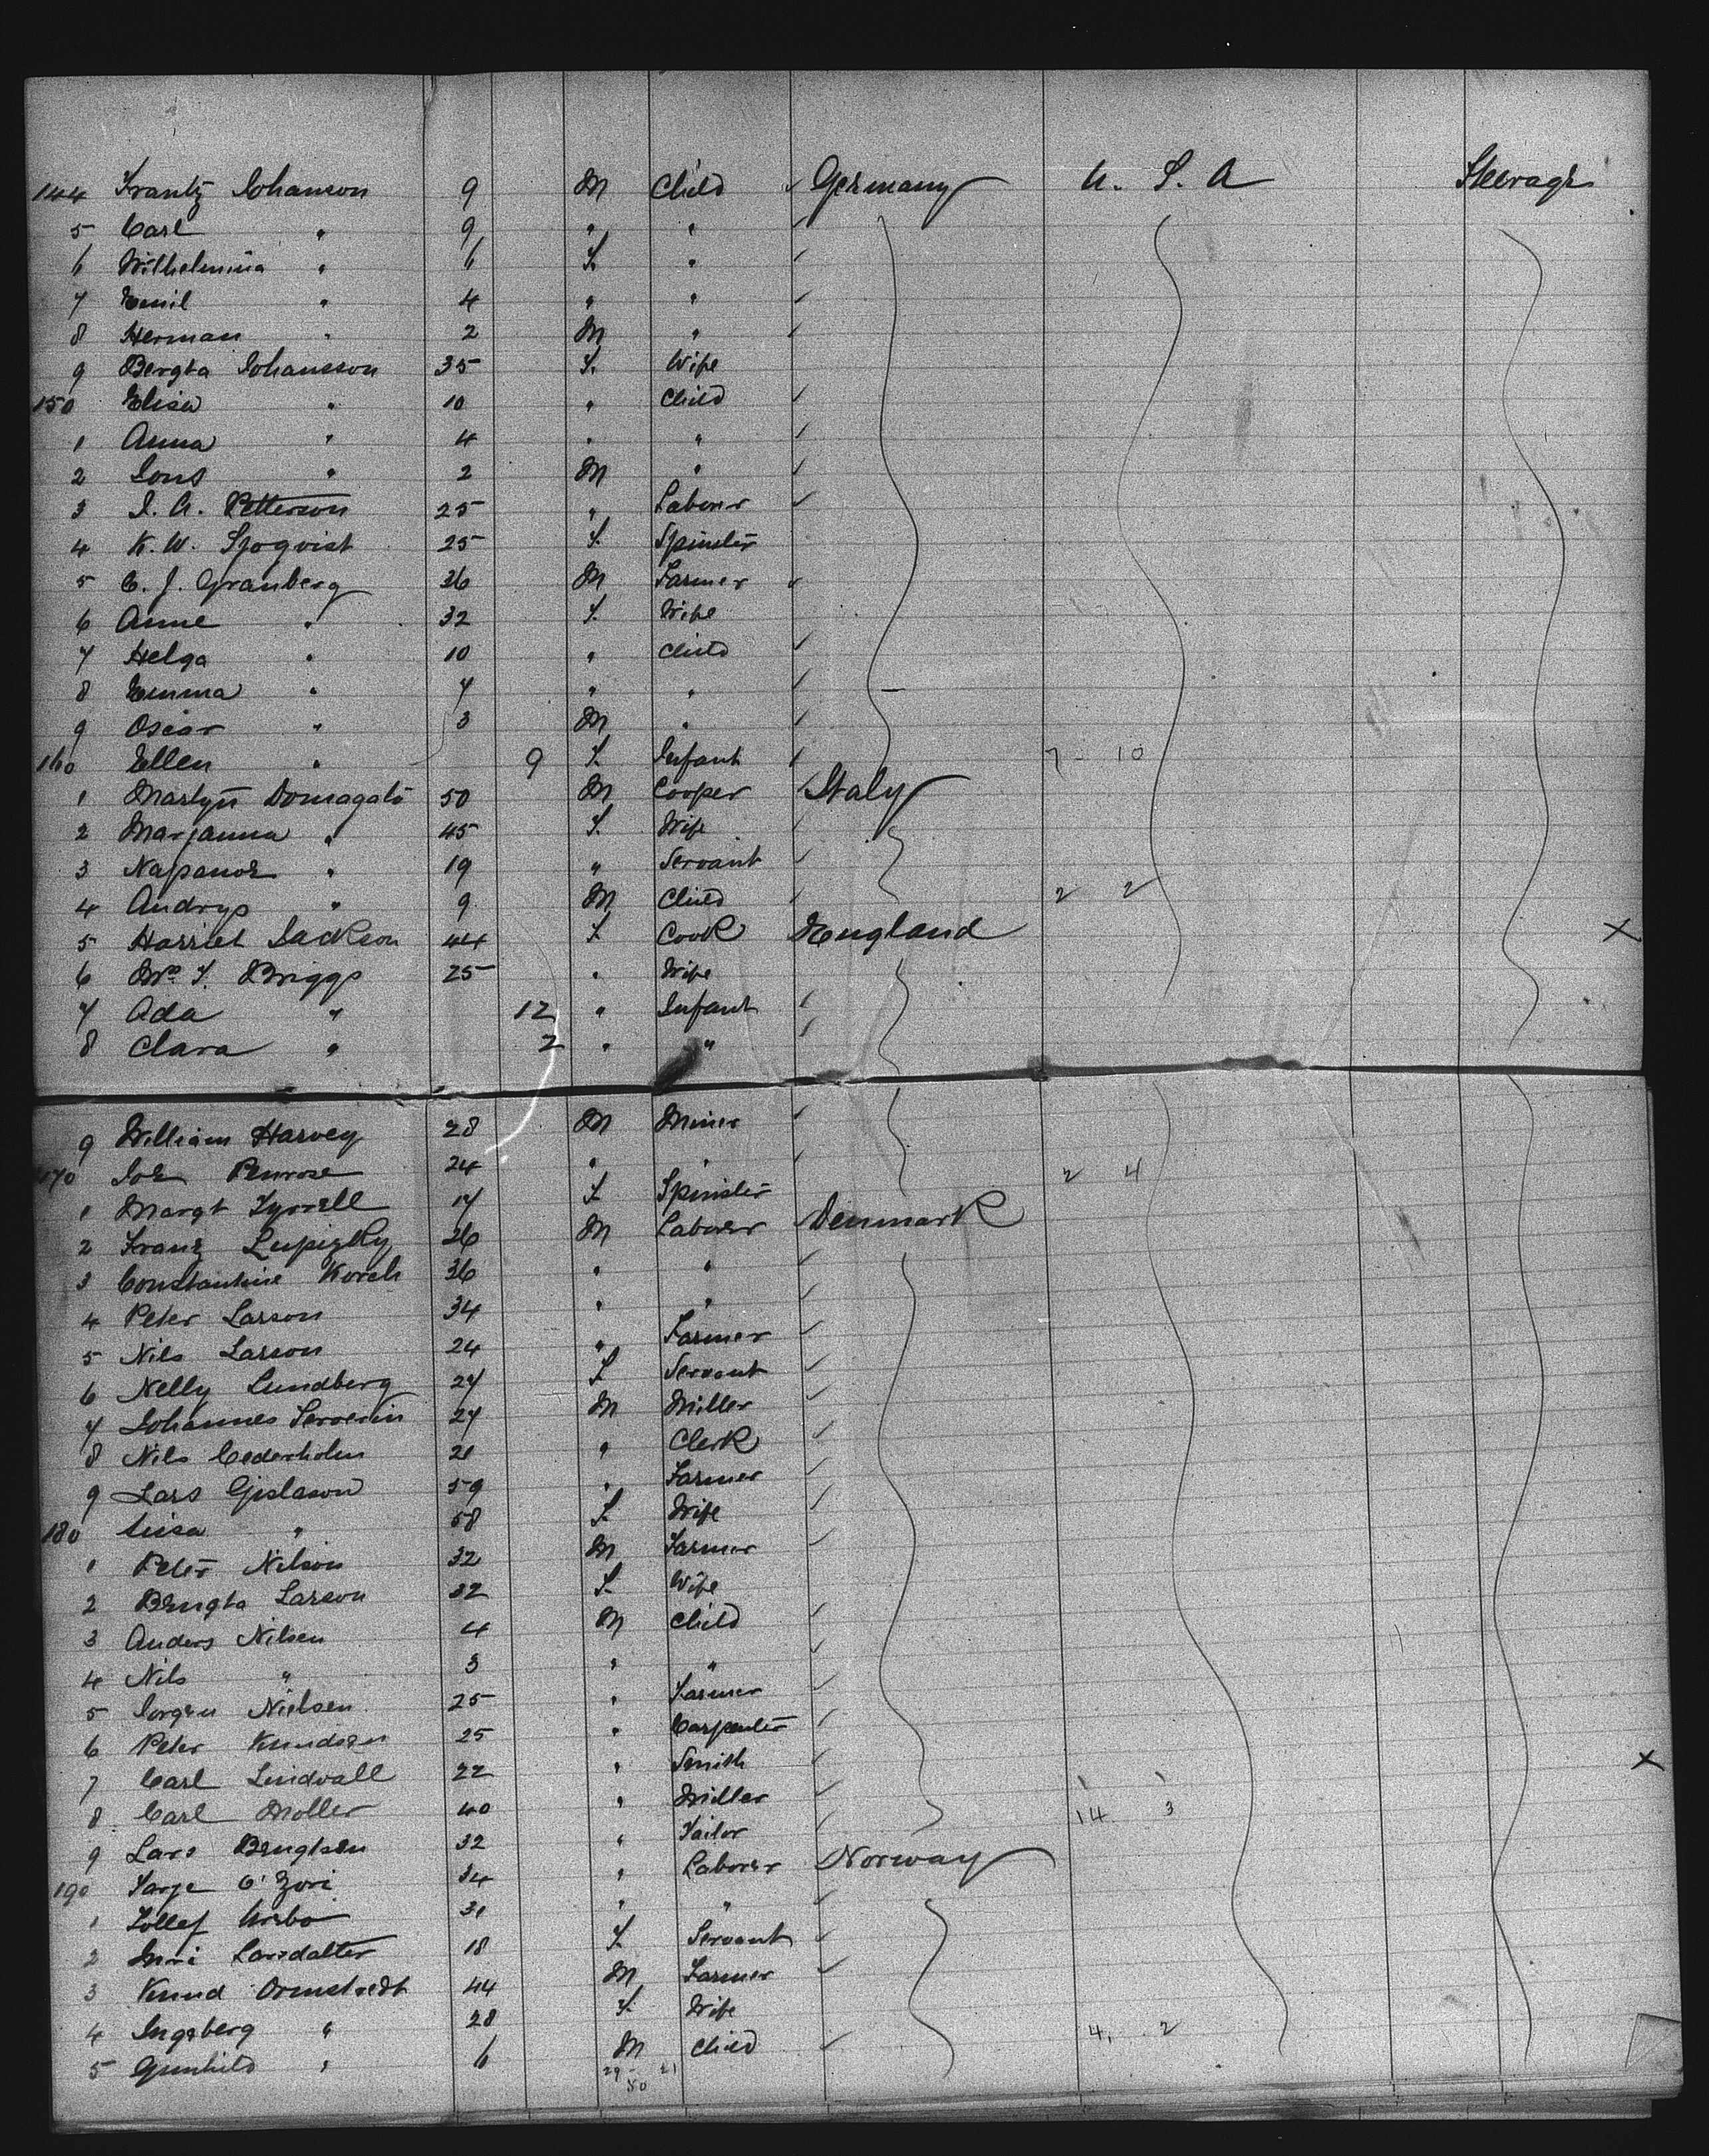 144 Frantz Johanson 9 M Child ✓ Germany U. S. A Steerage
5 Carl " 9 " " ✓
6 Wilhelmina " 6 F. " ✓
7 Emil " 4 " " ✓
8 Herman " 2 M " ✓
9 Bergta Johansson 35 F. Wife
150 Elisa " 10 " Child ✓
1 Anna " 4 " " ✓
2 Jons " 2 M " ✓
3 J. A. Petterson 25 " Laborer ✓
4 K. W. Sjoqvist 25 F. Spinster
5 C. J. Granberg 36 M Farmer ✓
6 Anne " 32 F. Wife
7 Helga " 10 " Child ✓
8 Emma " 7 " " ✓
9 Oscar " 3 M " ✓
160 Ellen " 9 F. Infant ✓ 7 - 10
1 Martyn Domagato 50 M Cooper Italy
2 Marjanna " 45 F. Wife
3 " 19 " Servant ✓
4 Andrys " 9 M Child ✓ 2 2
5 Harriet Jackson 44 F Cook England X
6 Mrs F. Briggs 25 " Wife
7 Ada " 12 " Infant ✓
8 Clara " 2 " " ✓
9 William Harvey 28 M Miner ✓
170 Joe Penrose 24 " " ✓ 2 4
1 Margt Tyrrell 17 F. Spinster
2 Franz 26 M Laborer Denmark
3 Constantine Korch 36 " " ✓
4 Peter Larson 34 " " ✓
5 Nils Larson 24 " Farmer ✓
6 Nelly Lundberg 27 F. Servant ✓
7 Johannes Serverin 27 M Miller ✓
8 Nils Cederholm 21 " Clerk ✓
9 Lars Gislason 59 " Farmer ✓
180 " 58 F. Wife ✓
1 Peter Nilson 32 M Farmer ✓
2 Bengta Larson 32 F. Wife
3 Anders Nilsen 4 M Child ✓
4 Nils " 3 " " ✓
5 Jorgen Nielsen 25 " Farmer ✓
6 Peter Knudsen 25 " Carpenter ✓
7 Carl Lindvall 22 " Smith ✓ X
8 Carl Moller 40 " Miller ✓ 14 3
9 Lars Bengtsen 32 " Tailor ✓
190 34 " Laborer Norway
1 31 " " ✓
2 Larsdatter 18 F. Servant ✓
3 Knud 44 M Farmer ✓
4 Ingeberg " 28 F. Wife 4, 2
5 Gunhild " 6 M Child ✓
29 - 21
50